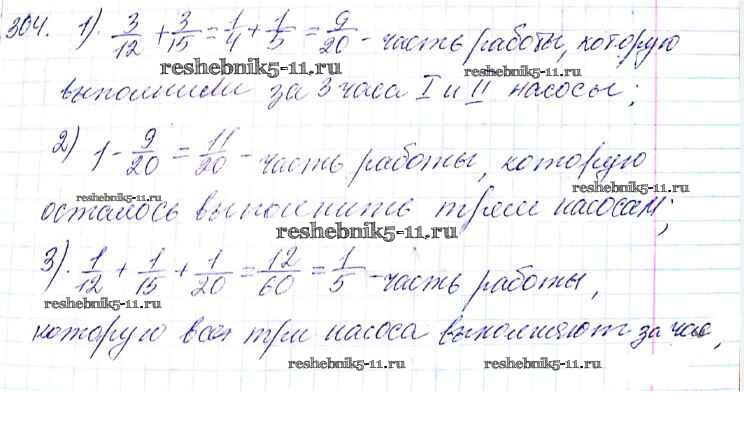 304. 1). 3/12 + 3/15 = 1/4 + 1/5 = 9/20 - часть работы, которую
reshebnik5-11.ru reshebnik5-11.ru
выполнили за 3 часа I и II насосы;
2) 1 - 9/20 = 11/20 - часть работы, которую
reshebnik5-11.ru reshebnik5-11.ru
осталось выполнить трём насосам;
reshebnik5-11.ru
3). 1/12 + 1/15 + 1/20 = 12/60 = 1/5 - часть работы,
reshebnik5-11.ru reshebnik5-11.ru
которую все три насоса выполняют за час,
reshebnik5-11.ru reshebnik5-11.ru